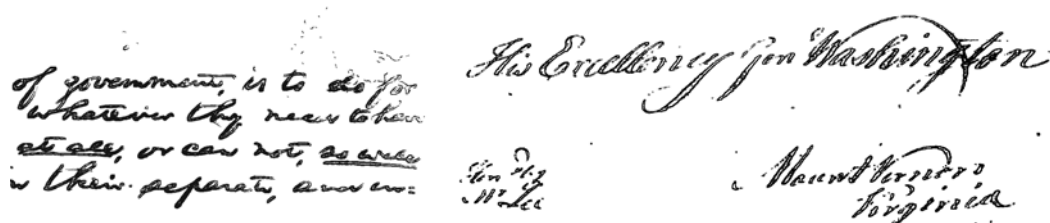 of government, is to do for
whatever they need to have
at all, or can not, so well
their separate, and in=
His Excellency Gen Washington
Mount Vernon
Virginia
Hon by
Mr Lee